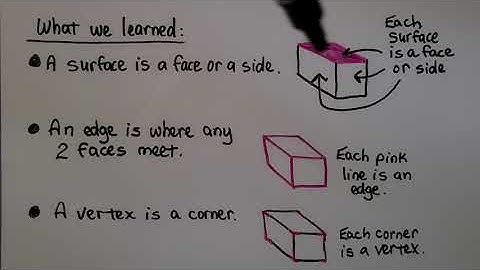 What we learned:
Each
surface
is a face
or side
• A surface is a face or a side.
• An edge is where any
2 faces meet.
Each pink
line is an
edge.
• A vertex is a corner.
Each corner
is a vertex.